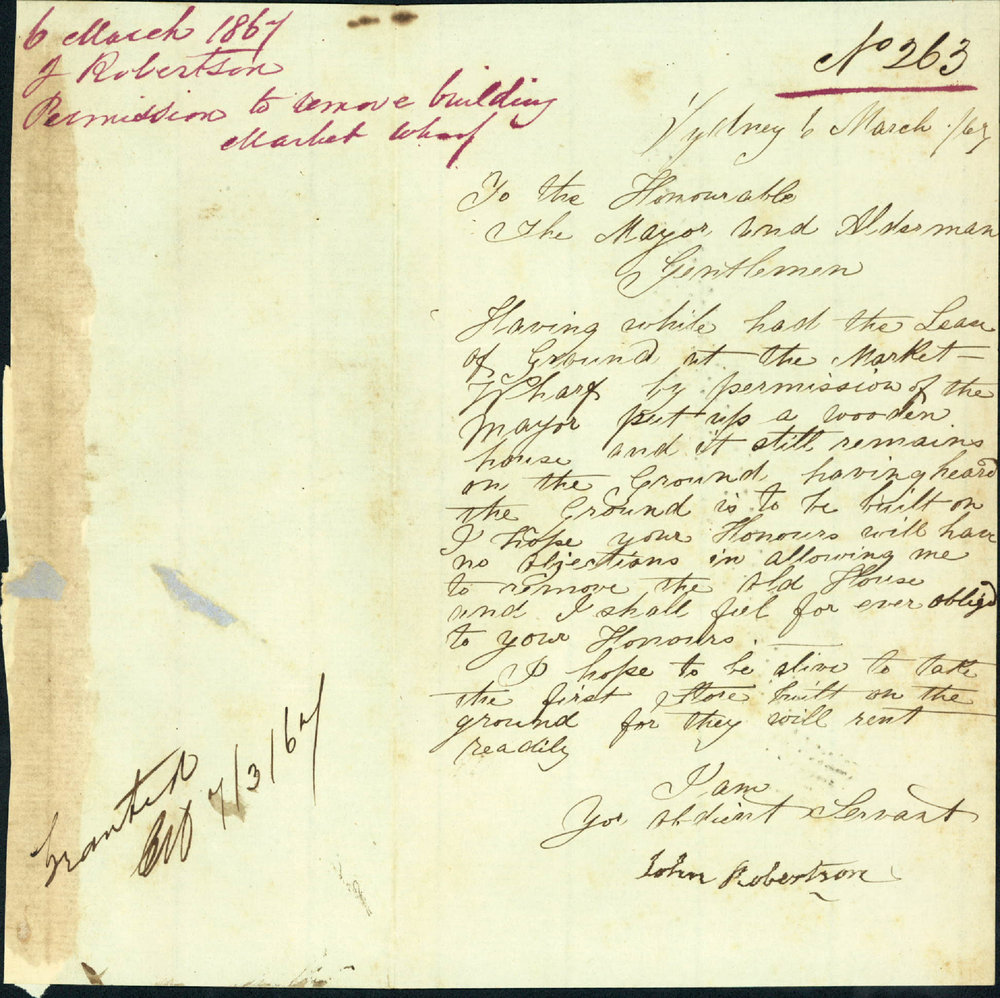 6 March 1867
J Robertson
Permission to remove building
Market Wharf
No 263
Sydney 6 March /67
To the Honourable
The Mayor and Alderman
Gentlemen
Having while had the Lease
of Ground at the Market-
Wharf by permission of the
Mayor put up a wooden
house and it still remains
on the Ground having heard
the Ground is to be built on
I hope your Honours will have
no objections in allowing me
to remove the old House
and I shall feel for ever obligd
to your Honours.
I hope to be alive to take
the first Store built on the
ground for they will rent
readily
I am
Your obdient Servant
John Robertson
Granted
7/3/67